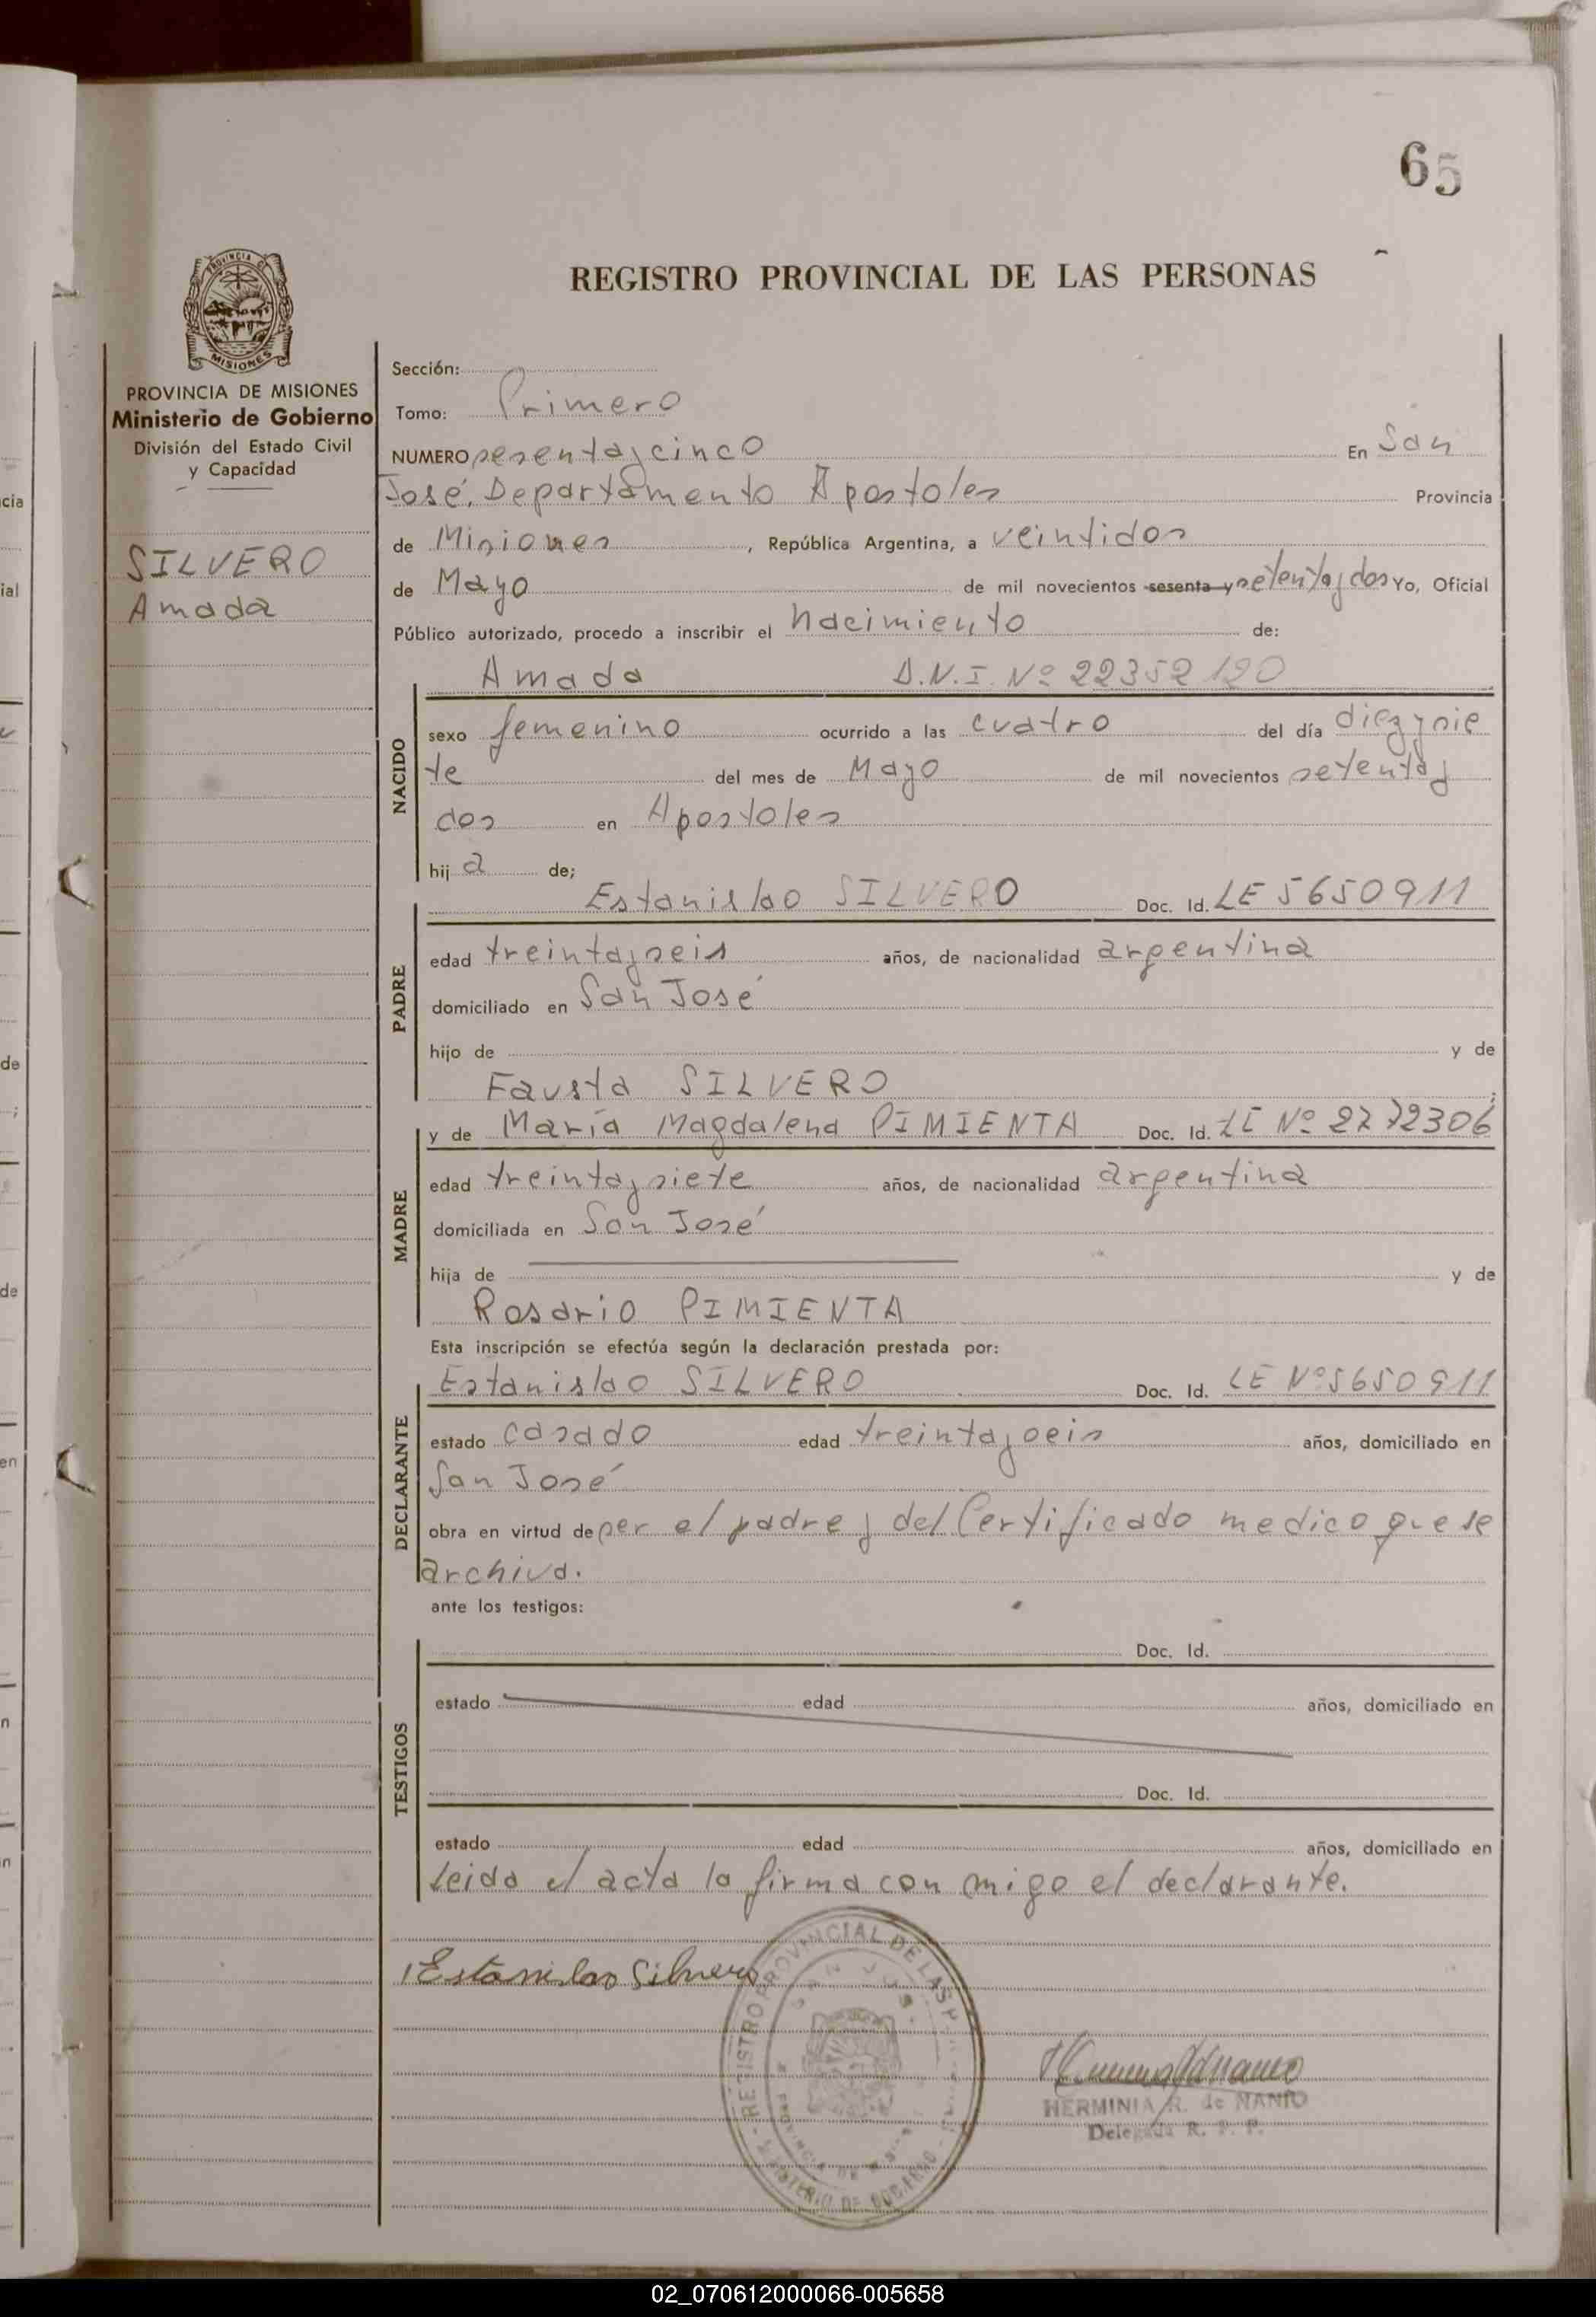 65
REGISTRO PROVINCIAL DE LAS PERSONAS
PROVINCIA DE MISIONES
Ministerio de Gobierno
División del Estado Civil
y Capacidad
SILVERO
Amada
Sección:
Tomo: Primero
NUMERO sesenta y cinco En San
José, Departamento Apostoles Provincia
de Misiones, República Argentina, a veintidos
de Mayo de mil novecientos sesenta y setenta y dos Yo, Oficial
Público autorizado, procedo a inscribir el nacimiento de:
Amada D.N.I. Nº 22352120
NACIDO
sexo femenino ocurrido a las cuatro del día diez y sie
te del mes de Mayo de mil novecientos setenta y
dos en Apostoles
hija de;
Estanislao SILVERO Doc. Id. LE 5650911
PADRE
edad treinta y seis años, de nacionalidad argentina
domiciliado en San José
hijo de y de
Fausta SILVERO;
MADRE
y de María Magdalena PIMIENTA Doc. Id. LC Nº 2772306
edad treinta y siete años, de nacionalidad argentina
domiciliada en San José
hija de y de
Rosario PIMIENTA
Esta inscripción se efectúa según la declaración prestada por:
Estanislao SILVERO Doc. Id. LE Nº 5650911
DECLARANTE
estado casado edad treinta y seis años, domiciliado en
San José
obra en virtud de ser el padre y del Certificado medico que se
archiva.
ante los testigos:
TESTIGOS
Doc. Id.
estado edad años, domiciliado en
Doc. Id.
estado edad años, domiciliado en
Leida el acta la firma con migo el declarante.
Estanislao Silvero
REGISTRO PROVINCIAL DE LAS P
MINISTERIO DE GOBIERNO
HERMINIA R. de NANIO
Delegada R. P. P.
02_070612000066-005658